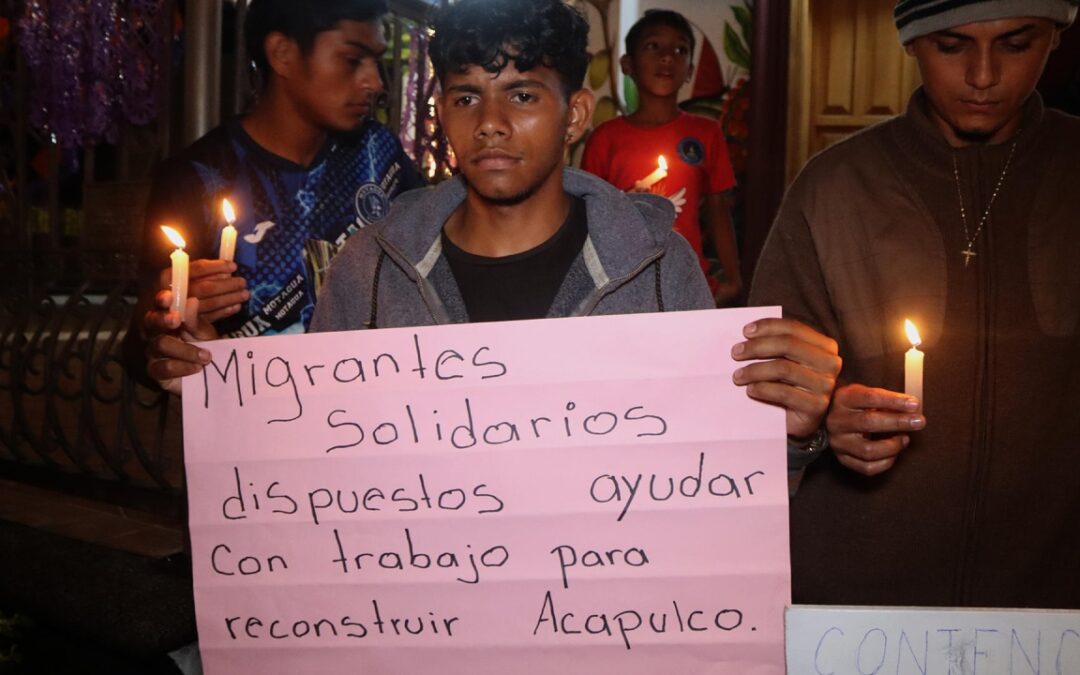 MOTAGUA
MOTAGUA
Migrantes
Solidarios
dispuestos ayudar
Con trabajo para
reconstruir Acapulco.